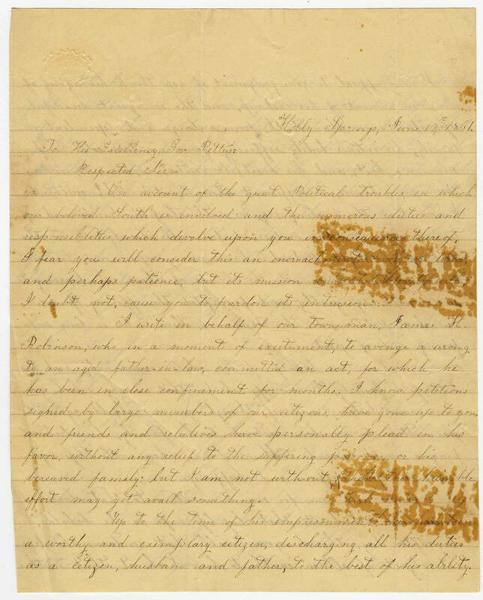 Holly Springs, June 12th 1861.
To His Excellency Gov Pettus
Respected Sir
On account of the great Political troubles in which
our beloved South is involved and the numerous duties and
responsibilities which devolve upon you in consequence thereof,
I fear you will consider this an encroachment upon your time
and perhaps patience, but its mission
I doubt not, cause you to pardon its intrusion.
I write in behalf of our townsman, James H.
Robinson, who in a moment of excitement, to avenge a wrong
to an aged father-in-law, committed an act, for which he
has been in close confinement for months. I know petitions
signed by large numbers of our citizens, have gone up to you
and friends and relatives have personally plead in his
favor, without any relief to the suffering prisoner or his
bereaved family; but I am not without humble
effort may yet avail something.
Up to the time of his imprisonment
a worthy and exemplary citizen, discharging all his duties
as a citizen, husband and father, to the best of his ability.